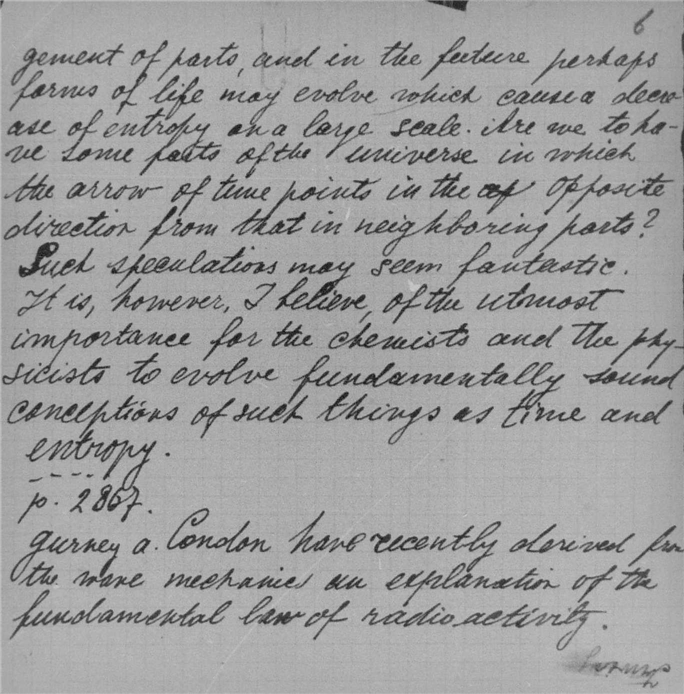 6
gement of parts, and in the future perhaps
forms of life may evolve which cause a decre-
ase of entropy on a large scale. Are we to ha-
ve some parts of the universe in which
the arrow of time points in the opposite
direction from that in neighboring parts?
Such speculations may seem fantastic.
It is, however, I believe, of the utmost
importance for the chemists and the phy-
sicists to evolve fundamentally sound
conceptions of such things as time and
entropy.
p. 2867.
Gurney a. Condon have recently derived from
the wave mechanics an explanation of the
fundamental law of radioactivity.